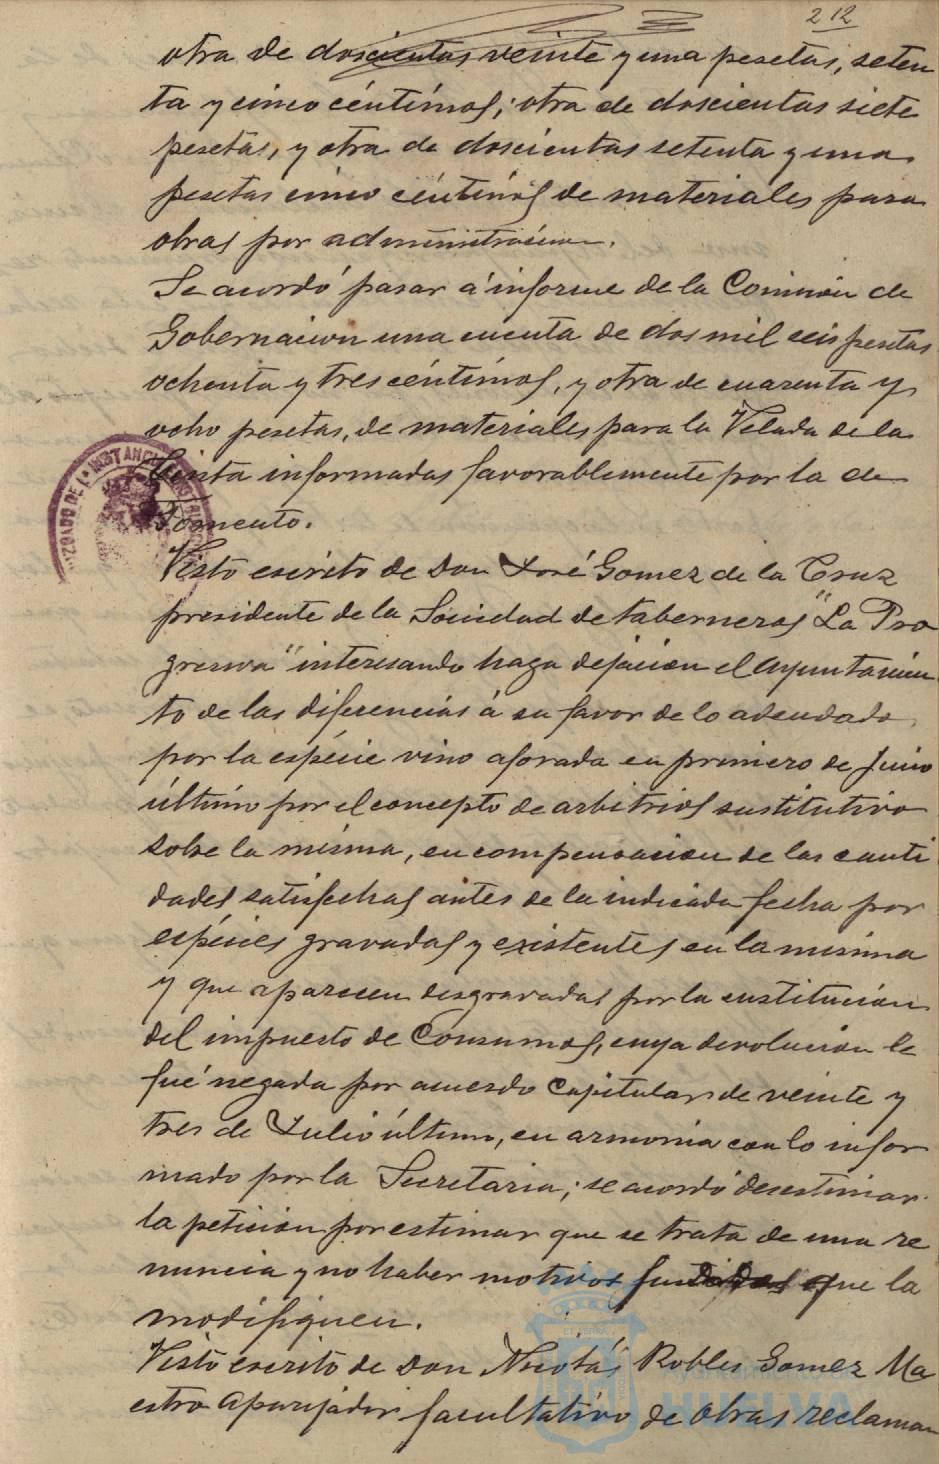 212
otra de doscientas veinte y una pesetas, seten
ta y cinco céntimos; otra de doscientas siete
pesetas, y otra de doscientas setenta y una
pesetas cinco céntimos de materiales para
obras por administracion.
Se acordó pasar á informe de la Comision de
Gobernacion una cuenta de dos mil seis pesetas
ochenta y tres céntimos, y otra de cuarenta y
ocho pesetas, de materiales para la Velada de la
Cinta informadas favorablemente por la de
Fomento.
Visto escrito de Don José Gomez de la Cruz
presidente de la Sociedad de taberneros "La Pro
gresiva" interesando haga dejacion el Ayuntamien
to de las diferencias á su favor de lo adeudado
por la espécie vino aforada en primero de Junio
último por el concepto de arbitrios sustitutivo
sobre la misma, en compensacion de las canti
dades satisfechas antes de la indicada fecha por
espécies gravadas y existentes en la misma
y que aparecen desgravadas por la sustitucion
del impuesto de Consumos, cuya devolucion le
fué negada por acuerdo Capitular de veinte y
tres de Julio último, en armonia con lo infor
mado por la Secretaria; se acordó desestimar
la peticion por estimar que se trata de una re
nuncia y no haber motivos fundados que la
modifiquen.
Visto escrito de Don Nicolás Robles Gomez Ma
estro Aparejador facultativo de Obras reclaman
JUZGADO DE 1ª INSTANCIA
Ayuntamiento de
HUELVA